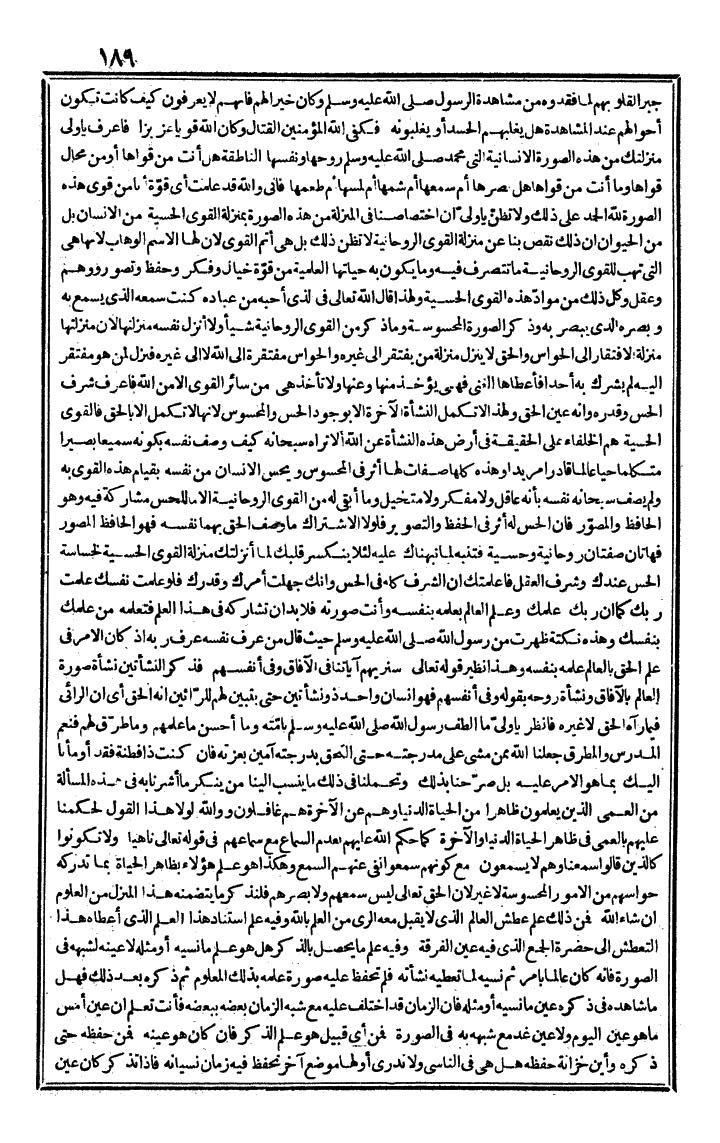 ١٨٩
جبرا لقلوبهم لما فقدوه من مشاهدة الرسول صلى الله عليه وسلم وكان خيرا لهم فانهم لا يعرفون كيف كانت تكون
أحوالهم عند المشاهدة هل يغلبهم الحسد أو يغلبونه فكفى الله المؤمنين القتال وكان الله قويا عزيزا فاعرف ياولى
منزلتك من هذه الصورة الانسانية التى محمد صلى الله عليه وسلم روحها ونفسها الناطقة هل أنت من قواها أو من محال
قواها وما أنت من قواها هل بصرها أم سمعها أم شمها أم لمسها أم طعمها فانى والله قد علمت أى قوّة أنا من قوى هذه
الصورة لله الحمد على ذلك ولا تظنّ ياولىّ ان اختصاصنا فى المنزلة من هذه الصورة بمنزلة القوى الحسية من الانسان بل
من الحيوان ان ذلك نقص بنا عن منزلة القوى الروحانية لا تظن ذلك بل هى أتم القوى لان لها الاسم الوهاب لانها هى
التى تهب للقوى الروحانية ما تتصرف فيه وما يكون به حياتها العلمية من قوّة خيال وفكر وحفظ وتصور ووهم
وعقل وكل ذلك من موادّ هذه القوى الحسية ولهذا قال الله تعالى فى الذى أحبه من عباده كنت سمعه الذى يسمع به
وبصره الذى يبصر به وذكر الصورة المحسوسة وما ذكر من القوى الروحانية شيأ ولا أنزل نفسه منزلتها لان منزلتها
منزلة الافتقار الى الحواس والحق لا ينزل منزلة من يفتقر الى غيره والحواس مفتقرة الى الله لا الى غيره فنزل لمن هو مفتقر
اليه لم يشرك به أحدا فأعطاها الغنى فهى يؤخذ منها وعنها ولا تأخذ هى من سائر القوى الا من الله فاعرف شرف
الحس وقدره وانه عين الحق ولهذا لا تكمل النشأة الآخرة الا بوجود الحس والمحسوس لانها لا تكمل الا بالحق فالقوى
الحسية هم الخلفاء على الحقيقة فى أرض هذه النشأة عن الله ألا تراه سبحانه كيف وصف نفسه بكونه سميعا بصيرا
متكلما حيا عالما قادرا مريدا وهذه كلها صفات لها أثر فى المحسوس ويحس الانسان من نفسه بقيام هذه القوى به
ولم يصف سبحانه نفسه بأنه عاقل ولا مفكر ولا متخيل وما أبقى له من القوى الروحانية الا ما للحس مشاركة فيه وهو
الحافظ والمصوّر فان الحس له أثر فى الحفظ والتصوير فلولا الاشتراك ما وصف الحق بهما نفسه فهو الحافظ المصور
فهاتان صفتان روحانية وحسية فتنبه لما نبهناك عليه لئلا ينكسر قلبك لما أنزلتك منزلة القوى الحسية لخساسة
الحس عندك وشرف العقل فاعلمتك ان الشرف كله فى الحس وانك جهلت أمرك وقدرك فلو علمت نفسك علمت
ربك كما ان ربك علمك وعلم العالم بعلمه بنفسه وأنت صورته فلا بد ان تشاركه فى هذا العلم فتعلمه من علمك
بنفسك وهذه نكتة ظهرت من رسول الله صلى الله عليه وسلم حيث قال من عرف نفسه عرف ربه اذ كان الامر فى
علم الحق بالعالم علمه بنفسه وهذا نظير قوله تعالى سنريهم آياتنا فى الآفاق وفى أنفسهم فذكر النشأتين نشأة صورة
العالم بالآفاق ونشأة روحه بقوله وفى أنفسهم فهو انسان واحد ذو نشأتين حتى يتبين لهم للرائين انه الحق أى ان الرائى
فيما رآه الحق لا غيره فانظر ياولىّ ما ألطف رسول الله صلى الله عليه وسلم بامّته وما أحسن ما علمهم وما طرّق لهم فنعم
المدرس والمطرق جعلنا الله ممن مشى على مدرجته حتى التحق بدرجته آمين بعزته فان كنت ذا فطنة فقد أومأنا
اليك بما هو الامر عليه بل صرّحنا بذلك وتحملنا فى ذلك ما ينسب الينا من ينكر ما أشرنا به فى هذه المسألة
من العمى الذين يعلمون ظاهرا من الحياة الدنيا وهم عن الآخرة هم غافلون ووالله لولا هذا القول لحكمنا
عليهم بالعمى فى ظاهر الحياة الدنيا والآخرة كما حكم الله عليهم بعدم السماع مع سماعهم فى قوله تعالى ناهيا ولا تكونوا
كالذين قالوا سمعنا وهم لا يسمعون مع كونهم سمعوا نفى عنهم السمع وهكذا هو علم هؤلاء بظاهر الحياة بما تدركه
حواسهم من الامور المحسوسة لا غير لان الحق تعالى ليس سمعهم ولا بصرهم فلنذكر ما يتضمنه هذا المنزل من العلوم
ان شاء الله فمن ذلك علم عطش العالم الذى لا يقبل معه الرى من العلم بالله وفيه علم استناد هذا العلم الذى أعطاه هذا
التعطش الى حضرة الجمع الذى فيه عين الفرقة وفيه علم ما يحصل بالذكر هل هو علم ما نسيه أو مثله لا عينه لشبهه فى
الصورة فانه كان عالما بامر ثم نسيه لما تعطيه نشأته فلم تحفظ عليه صورة علمه بذلك المعلوم ثم ذكره بعد ذلك فهل
ما شاهده فى ذكره عين ما نسيه أو مثله فان الزمان قد اختلف عليه مع شبه الزمان بعضه ببعضه فأنت تعلم ان عين أمس
ما هو عين اليوم ولا عين غد مع شبهه به فى الصورة فمن أى قبيل هو علم الذكر فان كان هو عينه فمن حفظه حتى
ذكره وأين خزانة حفظه هل هى فى الناسى ولا ندرى أو لها موضع آخر تحفظ فيه زمان نسيانه فاذا تذكر كان عين